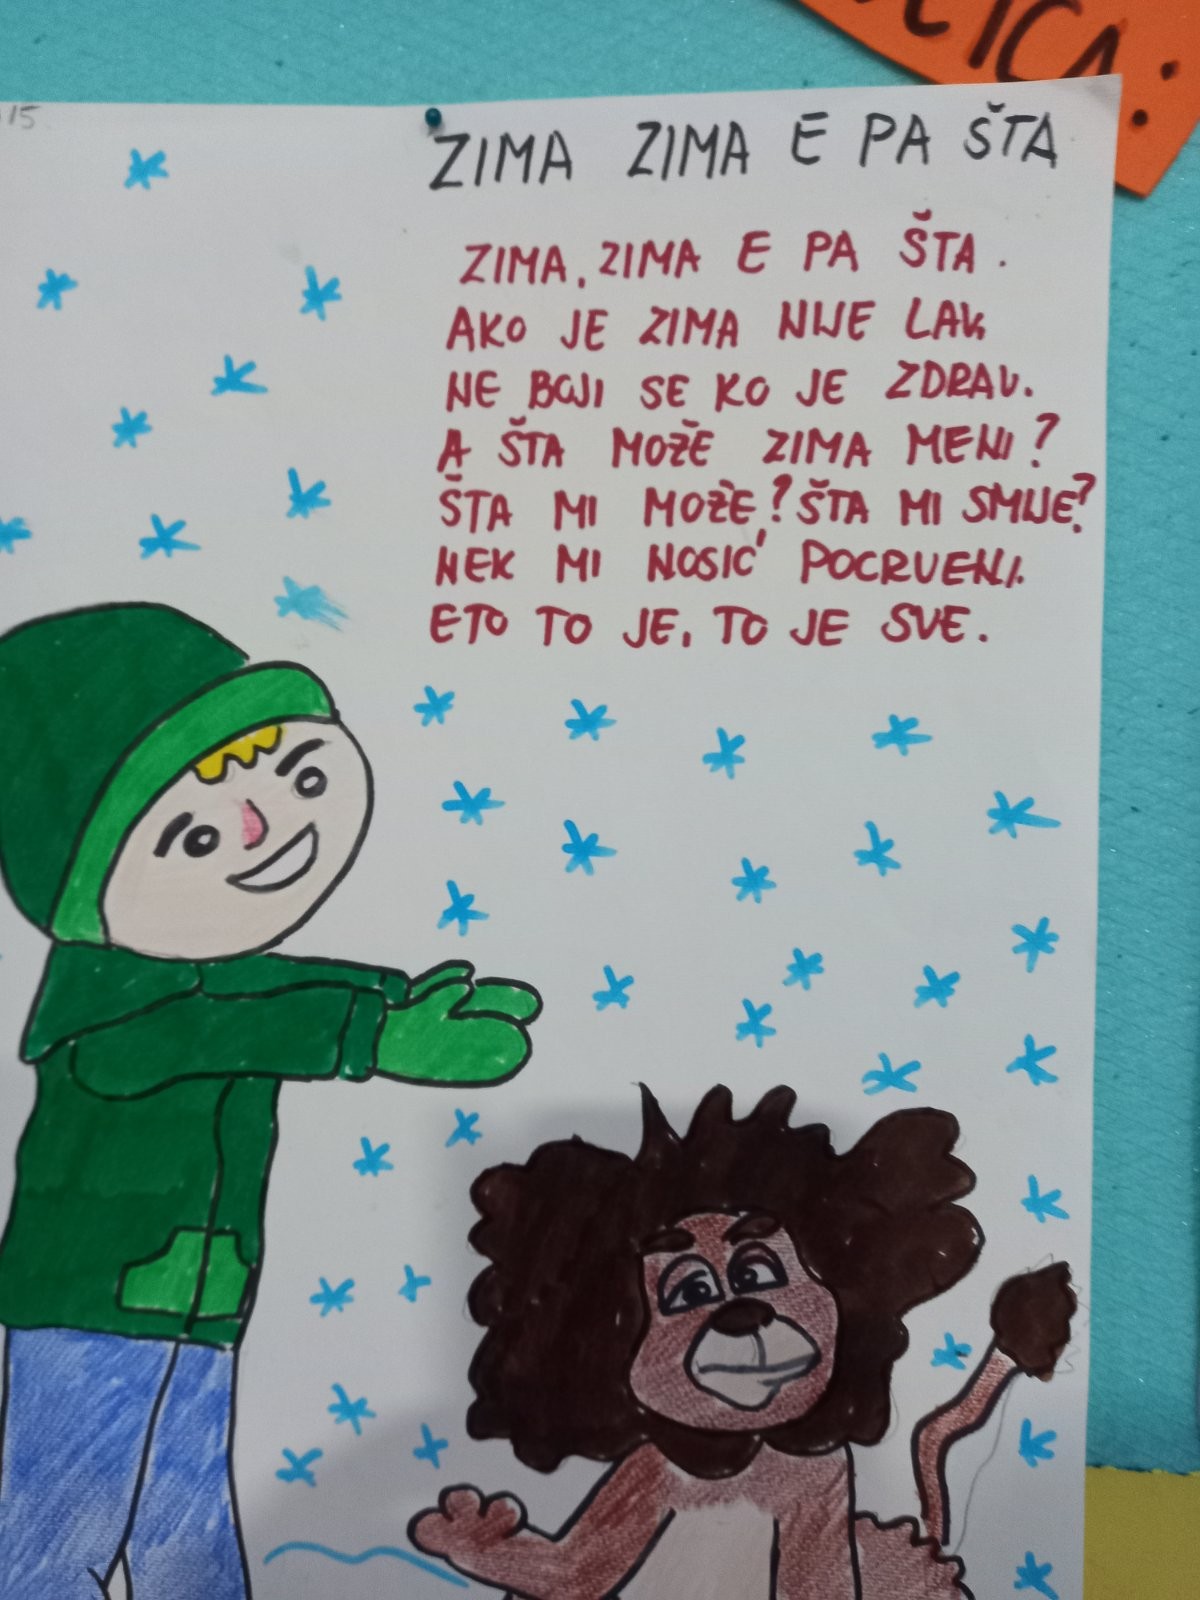 ICA:
15
ZIMA ZIMA E PA ŠTA
ZIMA, ZIMA E PA ŠTA.
AKO JE ZIMA NIJE LAV,
NE BOJI SE KO JE ZDRAV.
A ŠTA MOŽE ZIMA MENI?
ŠTA MI MOŽE? ŠTA MI SMIJE?
NEK MI NOSIĆ POCRVENI.
ETO TO JE, TO JE SVE.